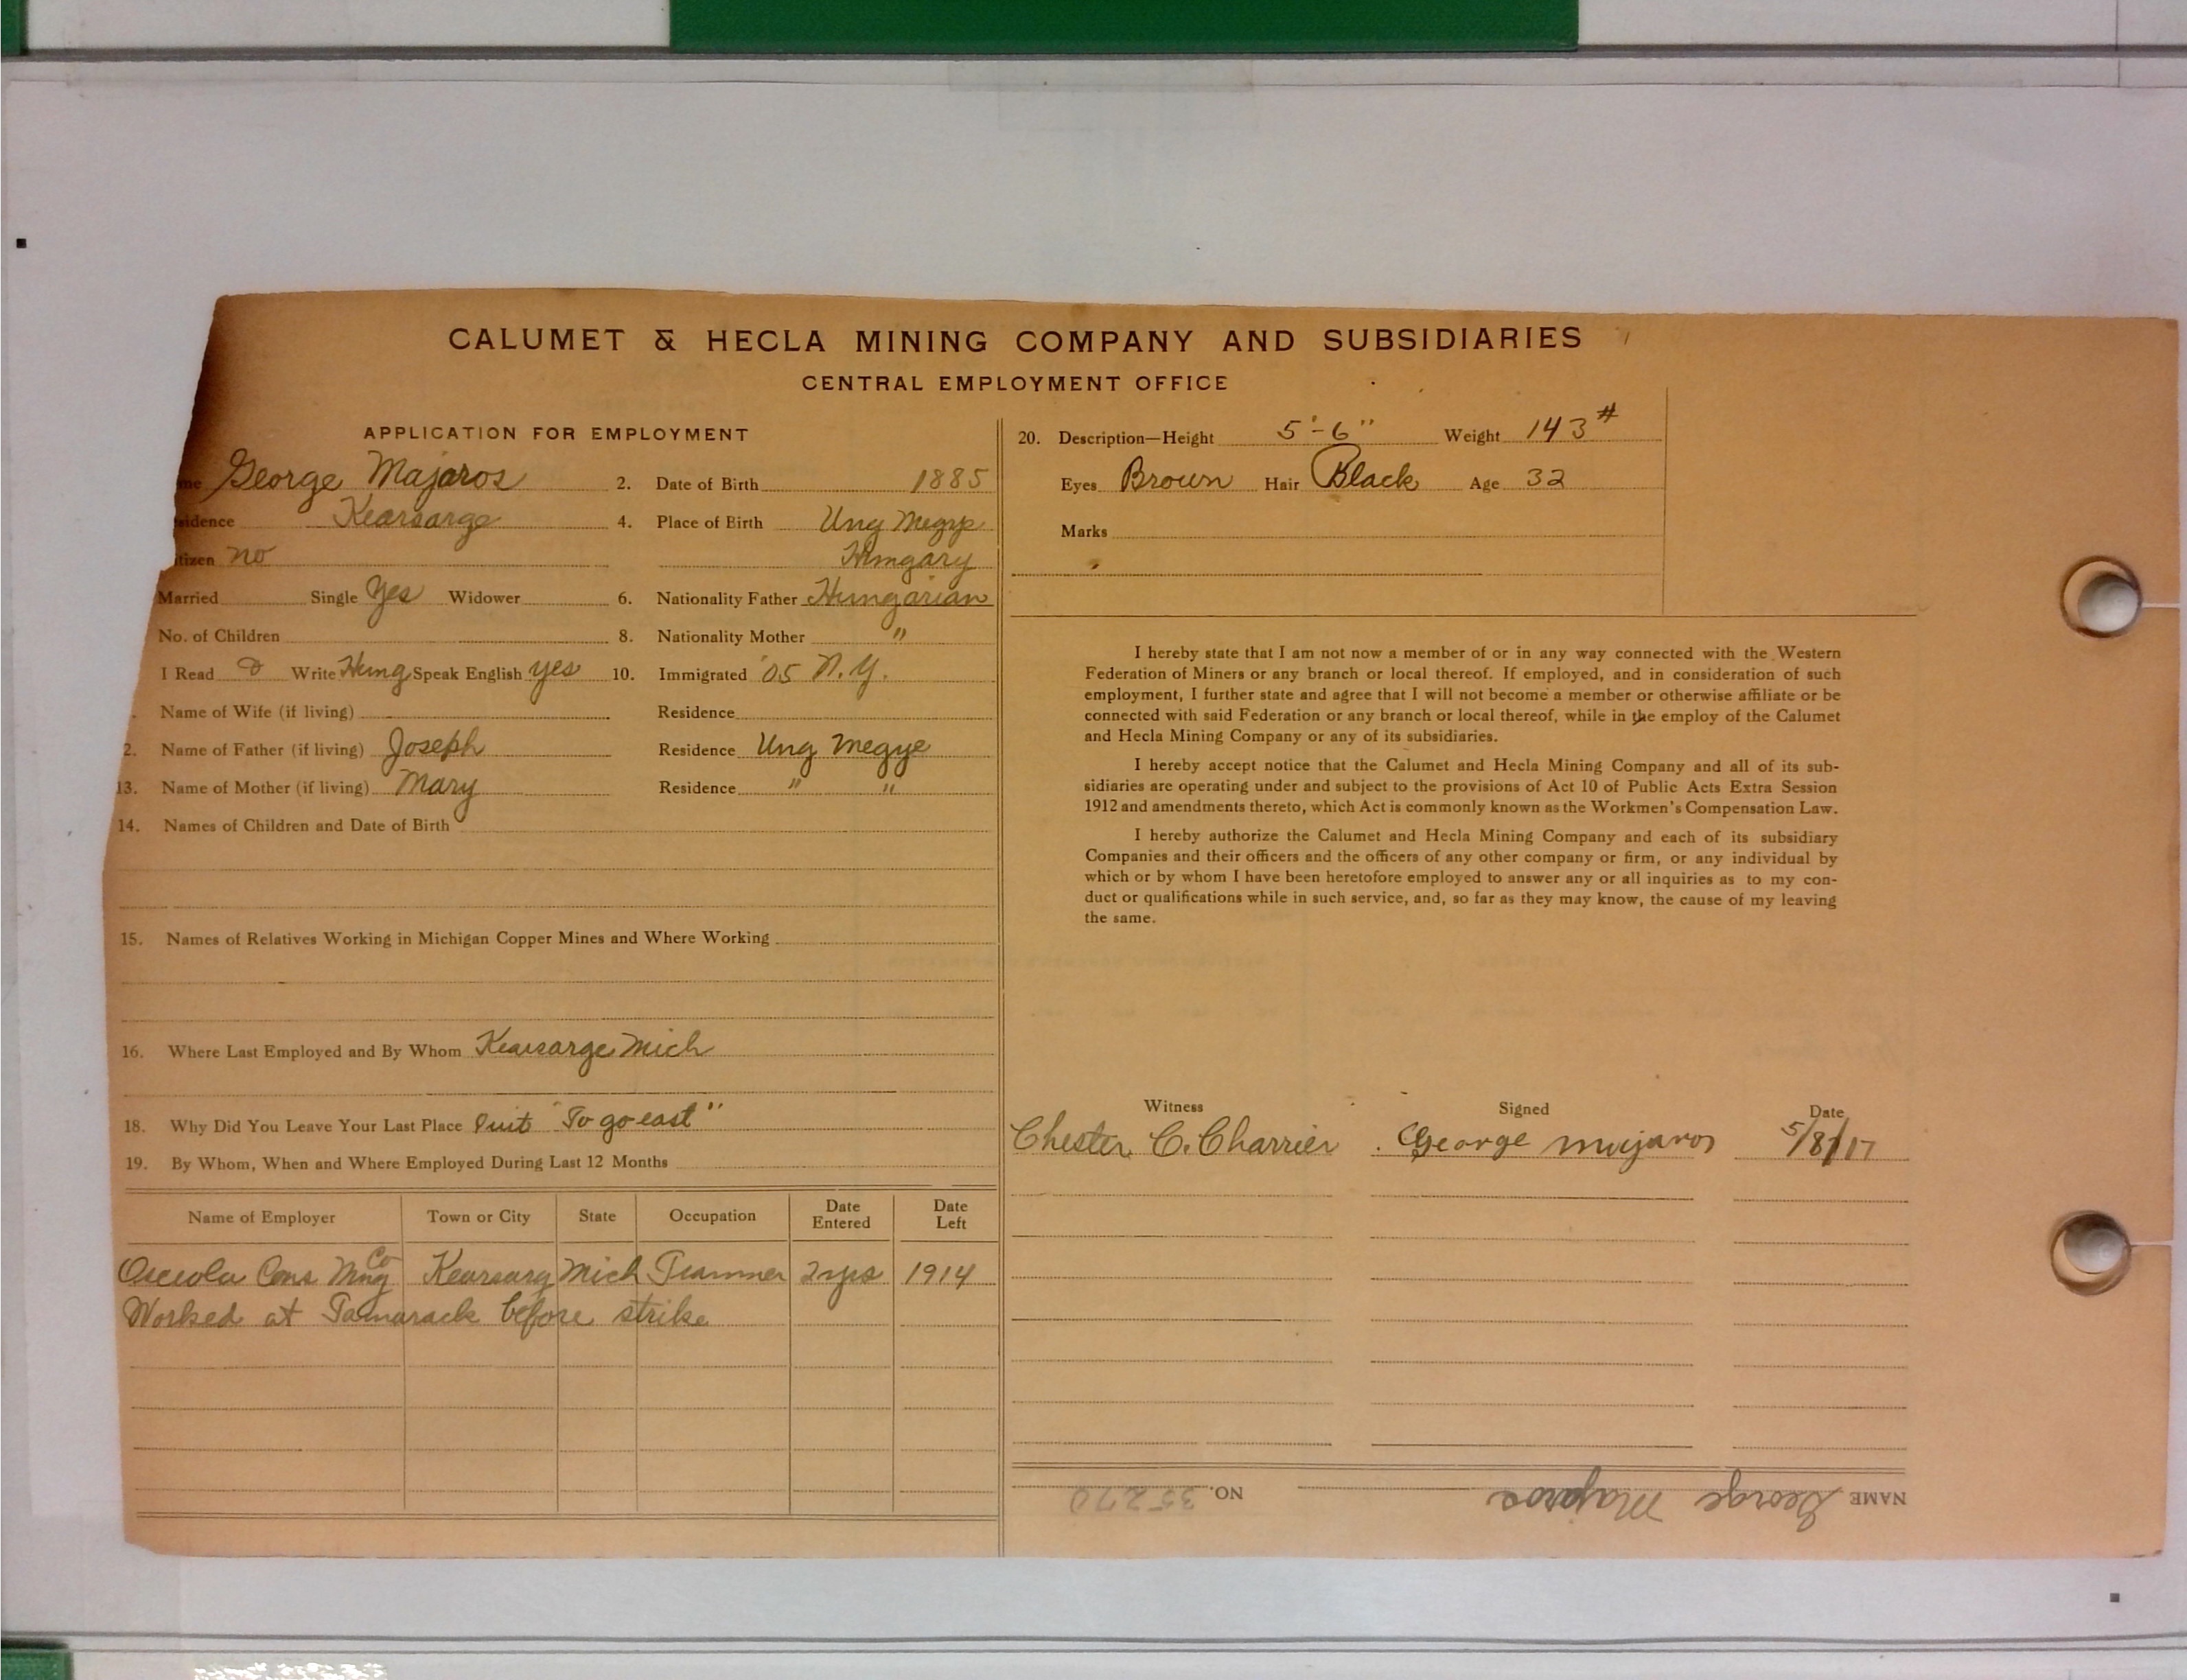 CALUMET & HECLA MINING COMPANY AND SUBSIDIARIES
CENTRAL EMPLOYMENT OFFICE
APPLICATION FOR EMPLOYMENT
me George Majoros 2. Date of Birth 1885
sidence Kearsarge 4. Place of Birth Ung Megye
itizen no Hungary
Married Single Yes Widower 6. Nationality Father Hungarian
No. of Children 8. Nationality Mother "
I Read & Write Hung Speak English yes 10. Immigrated '05 N.Y.
Name of Wife (if living) Residence
2. Name of Father (if living) Joseph Residence Ung Megye
13. Name of Mother (if living) Mary Residence " "
14. Names of Children and Date of Birth
15. Names of Relatives Working in Michigan Copper Mines and Where Working
16. Where Last Employed and By Whom Kearsarge Mich
18. Why Did You Leave Your Last Place Quit "To go east"
19. By Whom, When and Where Employed During Last 12 Months
Name of Employer Town or City State Occupation Date Entered Date Left
Osceola Cons Mng Co Kearsarg Mich Trammer 2 yrs 1914
Worked at Tamarack before strike
20. Description—Height 5'-6" Weight 143#
Eyes Brown Hair Black Age 32
Marks
I hereby state that I am not now a member of or in any way connected with the Western
Federation of Miners or any branch or local thereof. If employed, and in consideration of such
employment, I further state and agree that I will not become a member or otherwise affiliate or be
connected with said Federation or any branch or local thereof, while in the employ of the Calumet
and Hecla Mining Company or any of its subsidiaries.
I hereby accept notice that the Calumet and Hecla Mining Company and all of its sub-
sidiaries are operating under and subject to the provisions of Act 10 of Public Acts Extra Session
1912 and amendments thereto, which Act is commonly known as the Workmen's Compensation Law.
I hereby authorize the Calumet and Hecla Mining Company and each of its subsidiary
Companies and their officers and the officers of any other company or firm, or any individual by
which or by whom I have been heretofore employed to answer any or all inquiries as to my con-
duct or qualifications while in such service, and, so far as they may know, the cause of my leaving
the same.
Witness Signed Date
Chester C. Charrier George Mujaros 5/8/17
NAME George Majoros NO. 35270